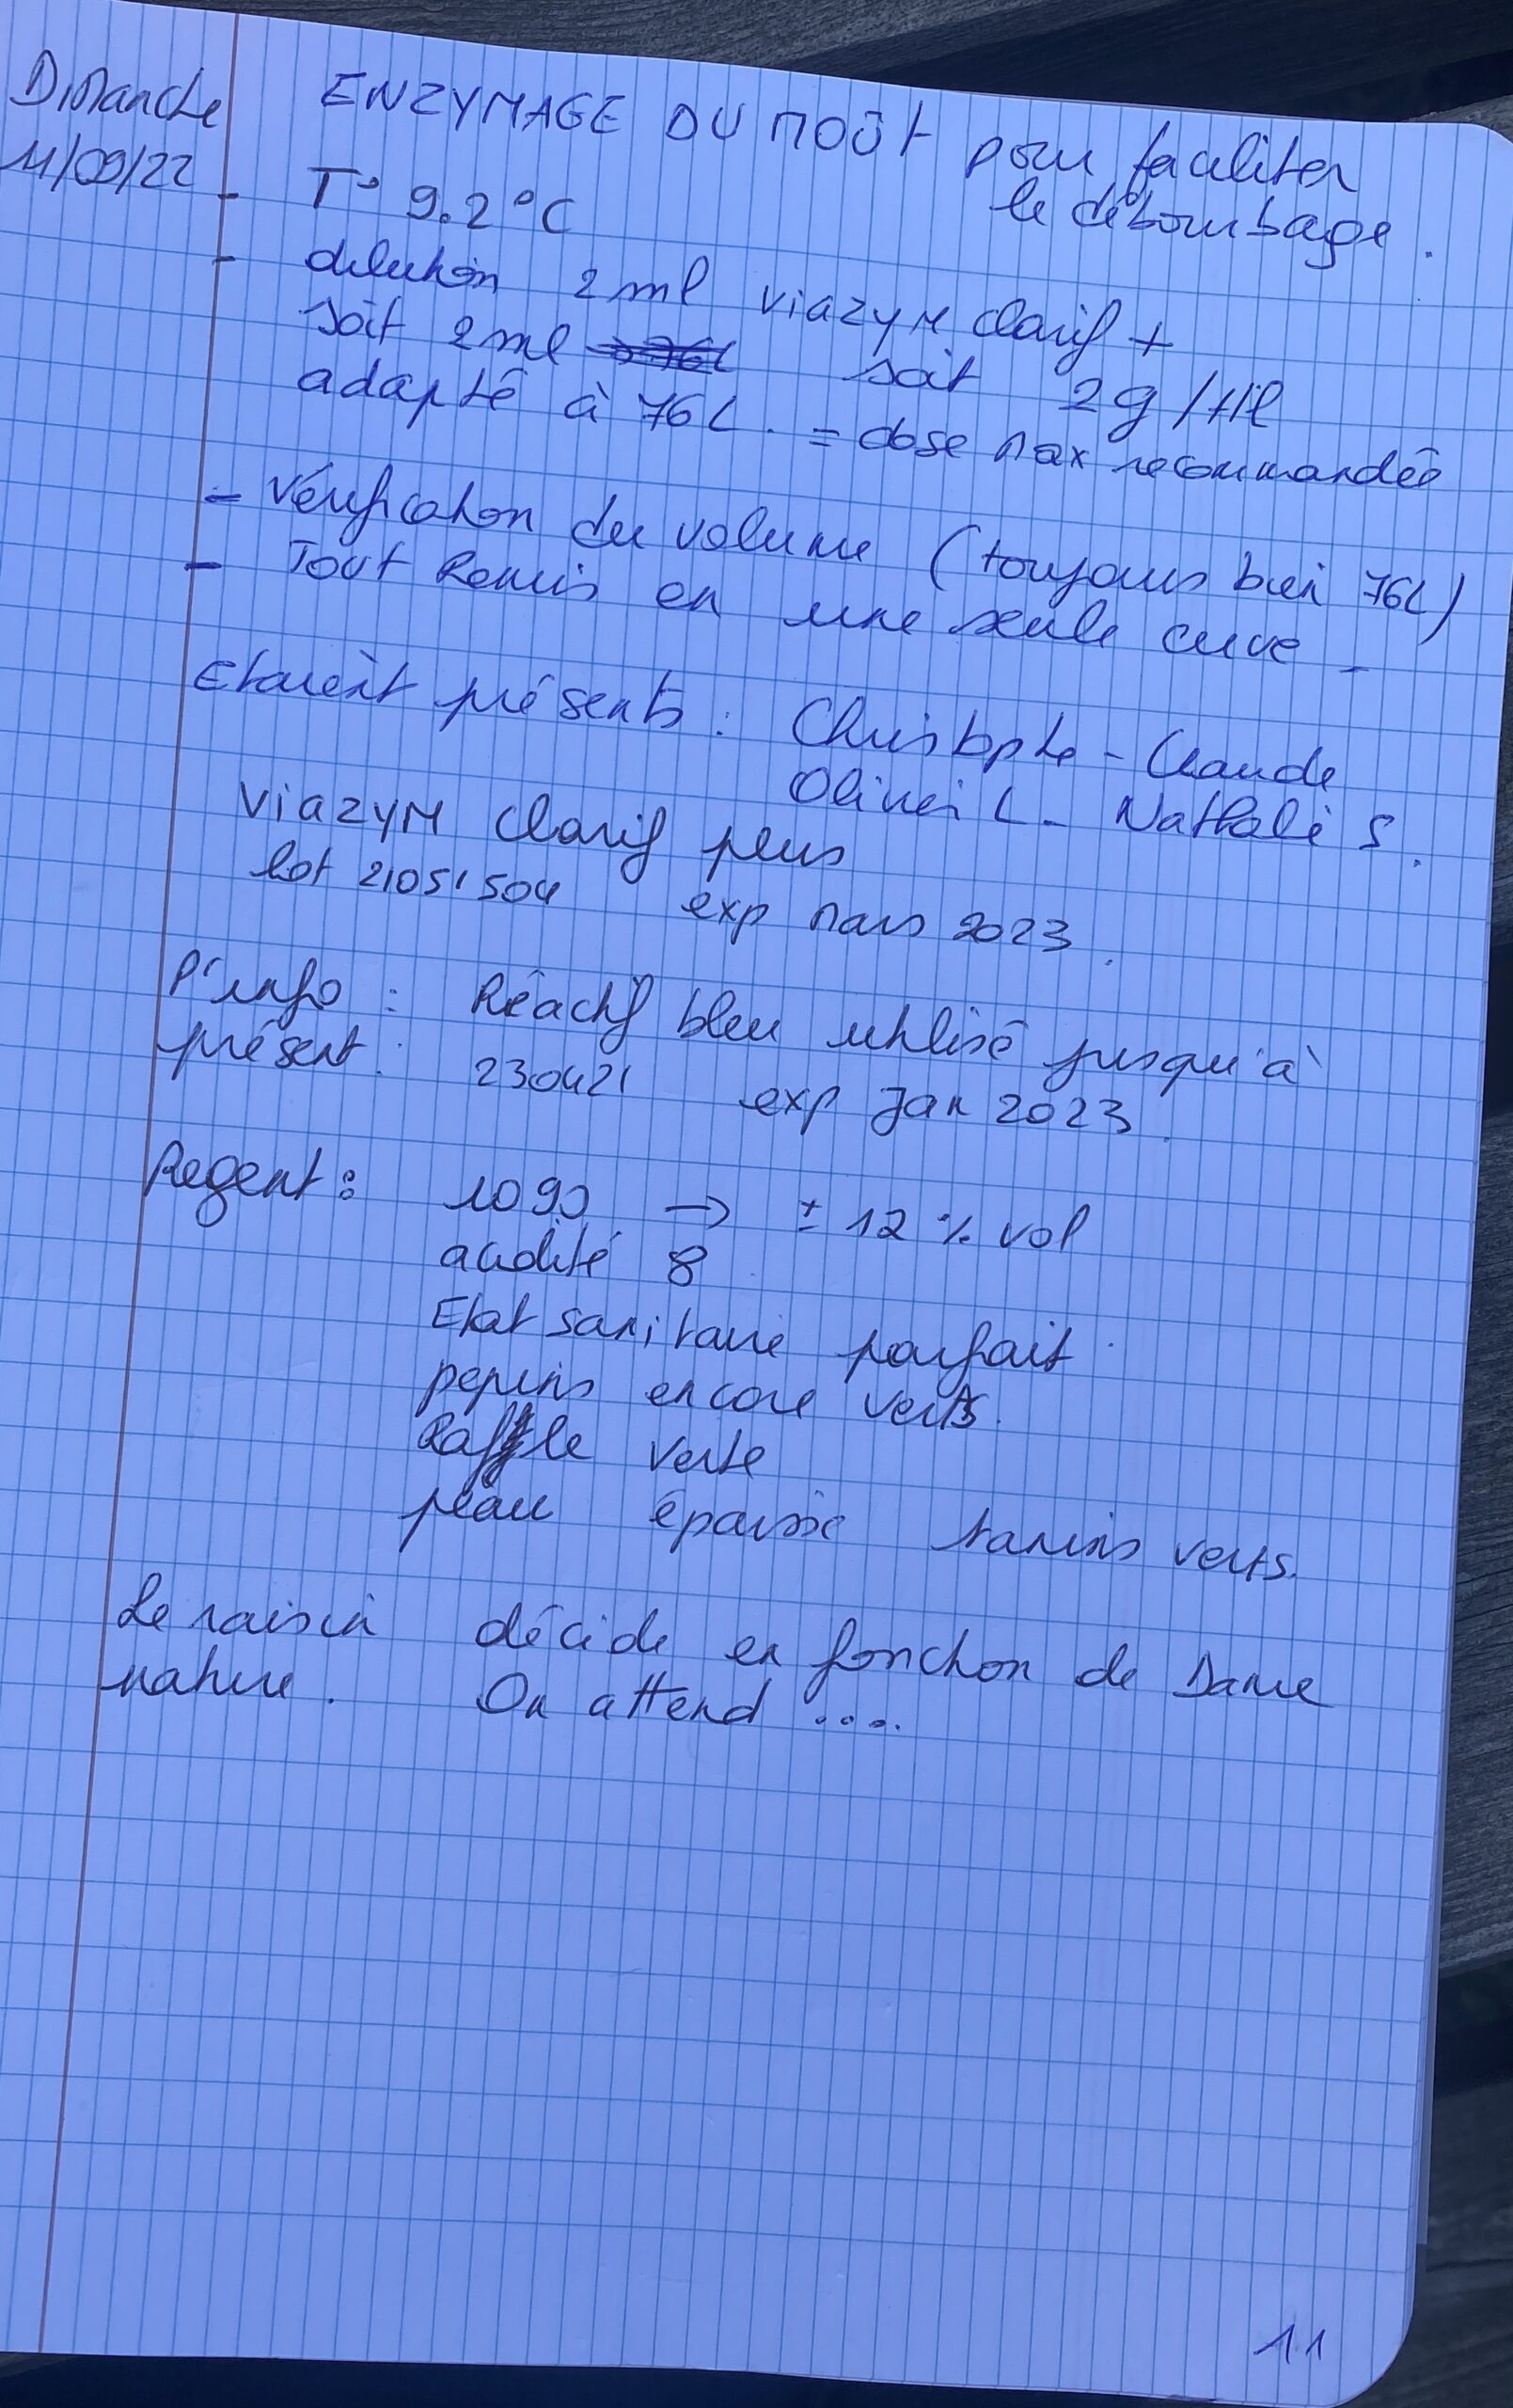 Dimanche ENZYMAGE DU MOÛT pour faciliter
11/09/22 le débourbage.
- T° 9.2°C
- dilution 2 ml viazym clarif +
soit 2 ml soit 2g/Hl
adapté à 76L. = dose max recommandée
- Vérification du volume (toujours bien 76L)
- Tout Remis en une seule cuve -
Etaient présents : Christophe - Claude
Olivier L - Nathalie S.
Viazym Clarif plus
lot 21051504 exp mars 2023.
P'info : Réactif bleu utilisé jusqu'à
présent : 230421 exp Jan 2023.
Regent : 1090 → ± 12 % vol
acidité 8
Etat sanitaire parfait.
pepins encore verts.
Raffle verte
peau épaisse tanins verts.
Le raisin décide en fonction de Dame
nature. On attend ....
11